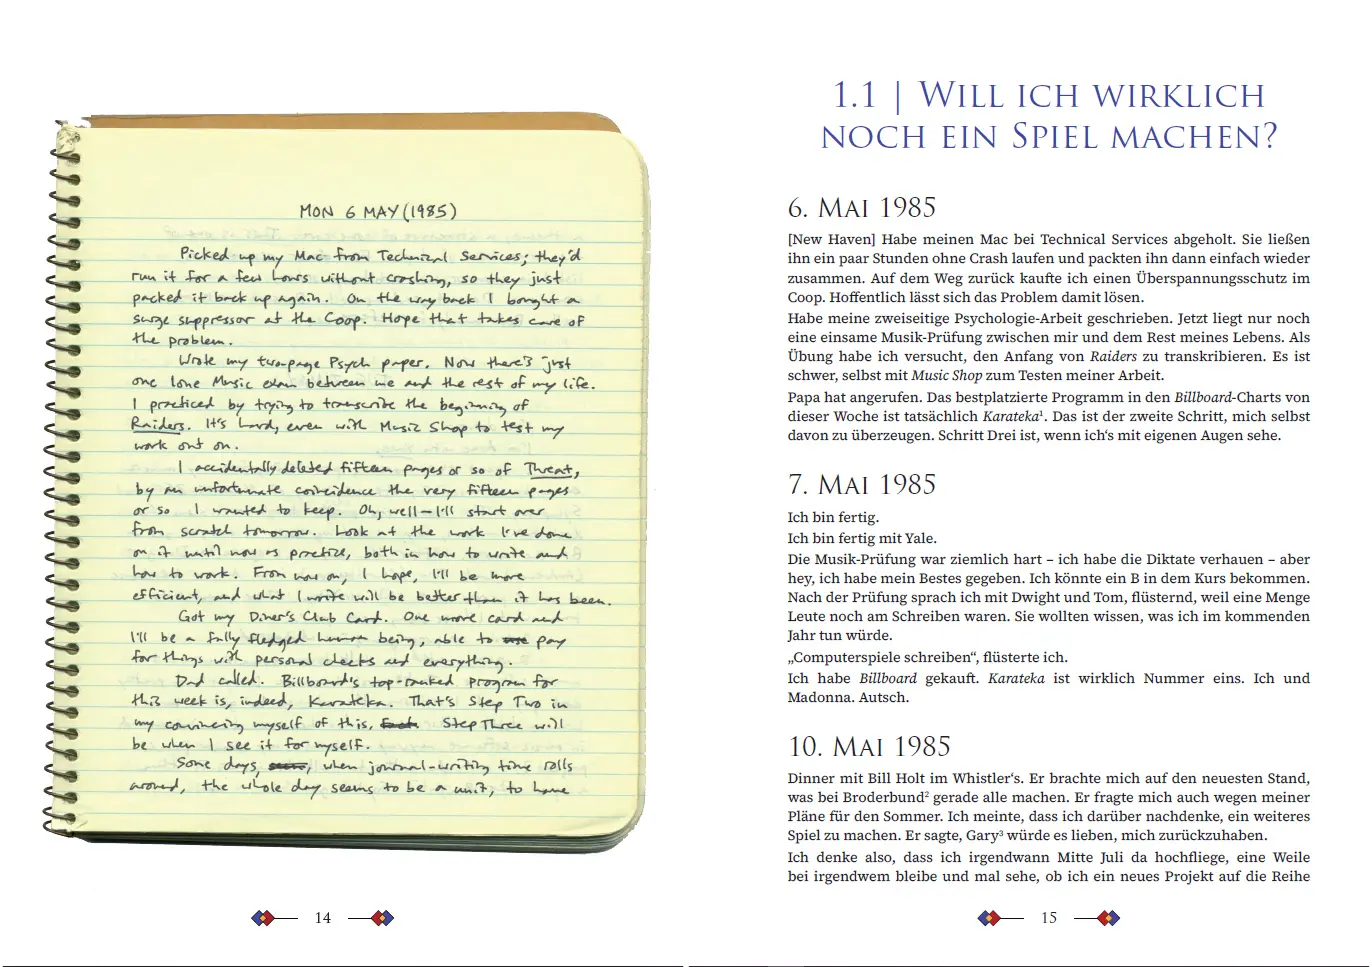 MON 6 MAY (1985)
Picked up my Mac from Technical Services; they'd
run it for a few hours without crashing, so they just
packed it back up again. On the way back I bought a
surge suppressor at the Coop. Hope that takes care of
the problem.
Wrote my two-page Psych paper. Now there's just
one lone Music exam between me and the rest of my life.
I practiced by trying to transcribe the beginning of
Raiders. It's hard, even with Music Shop to test my
work out on.
I accidentally deleted fifteen pages or so of Threat,
by an unfortunate coincidence the very fifteen pages
or so I wanted to keep. Oh, well – I'll start over
from scratch tomorrow. Look at the work I've done
on it until now as practice, both in how to write and
how to work. From now on, I hope, I'll be more
efficient, and what I write will be better than it has been.
Got my Diner's Club Card. One more card and
I'll be a fully fledged human being, able to pay
for things with personal checks and everything.
Dad called. Billboard's top-ranked program for
this week is, indeed, Karateka. That's Step Two in
my convincing myself of this. Step Three will
be when I see it for myself.
Some days, when journal-writing time rolls
around, the whole day seems to be a unit, to have
14
1.1 | WILL ICH WIRKLICH
NOCH EIN SPIEL MACHEN?
6. MAI 1985
[New Haven] Habe meinen Mac bei Technical Services abgeholt. Sie ließen
ihn ein paar Stunden ohne Crash laufen und packten ihn dann einfach wieder
zusammen. Auf dem Weg zurück kaufte ich einen Überspannungsschutz im
Coop. Hoffentlich lässt sich das Problem damit lösen.
Habe meine zweiseitige Psychologie-Arbeit geschrieben. Jetzt liegt nur noch
eine einsame Musik-Prüfung zwischen mir und dem Rest meines Lebens. Als
Übung habe ich versucht, den Anfang von Raiders zu transkribieren. Es ist
schwer, selbst mit Music Shop zum Testen meiner Arbeit.
Papa hat angerufen. Das bestplatzierte Programm in den Billboard-Charts von
dieser Woche ist tatsächlich Karateka¹. Das ist der zweite Schritt, mich selbst
davon zu überzeugen. Schritt Drei ist, wenn ich‘s mit eigenen Augen sehe.
7. MAI 1985
Ich bin fertig.
Ich bin fertig mit Yale.
Die Musik-Prüfung war ziemlich hart – ich habe die Diktate verhauen – aber
hey, ich habe mein Bestes gegeben. Ich könnte ein B in dem Kurs bekommen.
Nach der Prüfung sprach ich mit Dwight und Tom, flüsternd, weil eine Menge
Leute noch am Schreiben waren. Sie wollten wissen, was ich im kommenden
Jahr tun würde.
„Computerspiele schreiben“, flüsterte ich.
Ich habe Billboard gekauft. Karateka ist wirklich Nummer eins. Ich und
Madonna. Autsch.
10. MAI 1985
Dinner mit Bill Holt im Whistler‘s. Er brachte mich auf den neuesten Stand,
was bei Broderbund² gerade alle machen. Er fragte mich auch wegen meiner
Pläne für den Sommer. Ich meinte, dass ich darüber nachdenke, ein weiteres
Spiel zu machen. Er sagte, Gary³ würde es lieben, mich zurückzuhaben.
Ich denke also, dass ich irgendwann Mitte Juli da hochfliege, eine Weile
bei irgendwem bleibe und mal sehe, ob ich ein neues Projekt auf die Reihe
15